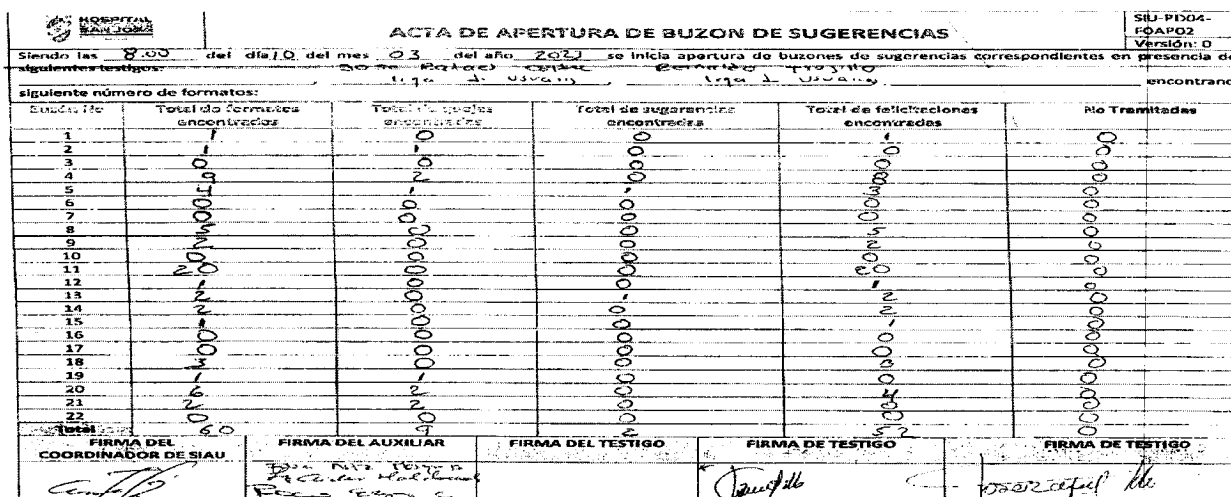 HOSPITAL
SAN JOSE
ACTA DE APERTURA DE BUZON DE SUGERENCIAS
SIU-PD04-
FOAP02
Versión: 0
Siendo las 8.00 del día 10 del mes 03 del año 2021 se inicia apertura de buzones de sugerencias correspondientes en presencia de
siguientes testigos: Jose Rafael Bernardo Trujillo
liga d. Usuario, liga d. Usuario encontrand
siguiente número de formatos:
Buzón No Total de formatos encontrados Total de quejas encontradas Total de sugerencias encontradas Total de felicitaciones encontradas No Tramitadas
1 1 0 0 1 0
2 1 1 0 0 0
3 0 0 0 0 0
4 2 0 0
5 1 1 3 0
6 0 0 0 0 0
7 0 0 0 0 0
8 5 0 0 5 0
9 2 0 0 2 0
10 0 0 0 0 0
11 20 0 0 20 0
12 1 0 0 1 0
13 2 0 2 0
14 2 0 0 2 0
15 1 0 0 1 0
16 0 0 0 0 0
17 0 0 0 0 0
18 3 0 0 3 0
19 1 1 0 0 0
20 6 2 0 4 0
21 2 2 0 0 0
22 0 0 0 0 0
Total 60 9 52 0
FIRMA DEL COORDINADOR DE SIAU FIRMA DEL AUXILIAR FIRMA DEL TESTIGO FIRMA DE TESTIGO FIRMA DE TESTIGO